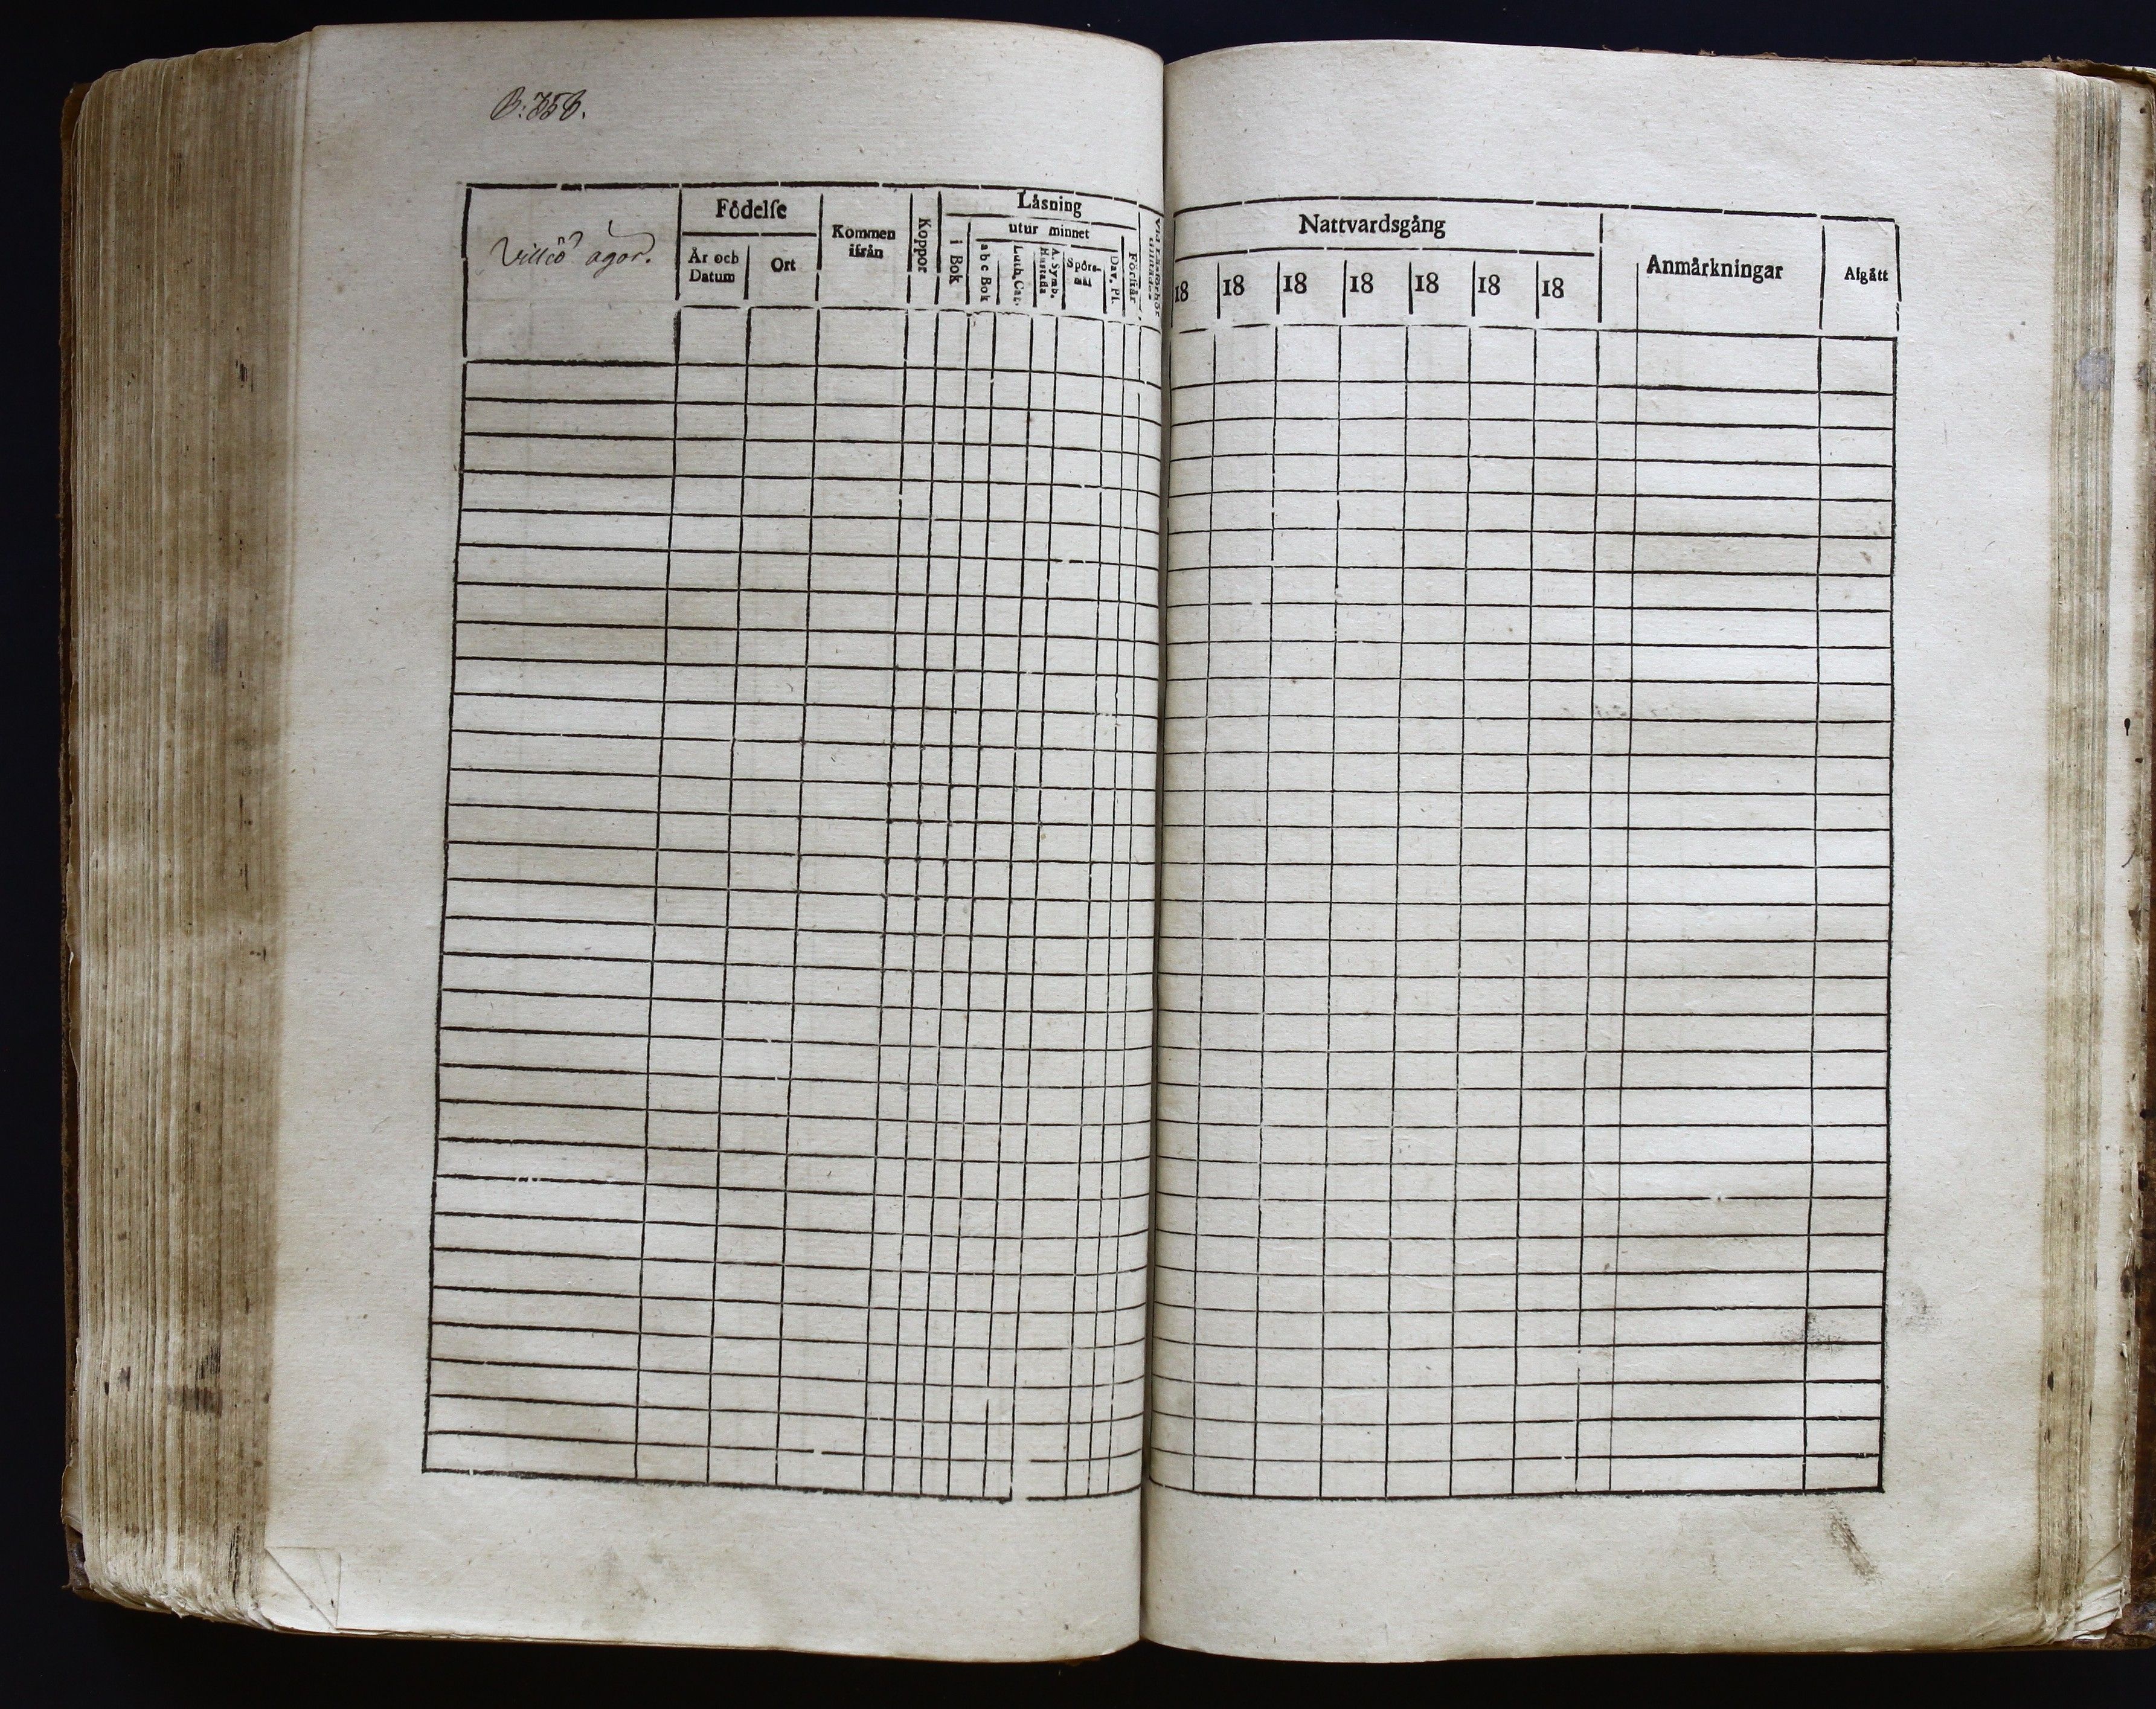 B: 356.
Villiö ägor.
Födelse
År och
Datum
Ort
Kommen
ifrån
Koppor
Läsning
i Bok
utur minnet
abc Bok
Luth. Cat.
A. Symb.
Hustafla
Spörs-
mål
Dav. Ps.
Förstår
Nattvardsgång
18
18
18
18
18
18
18
Anmärkningar
Afgått